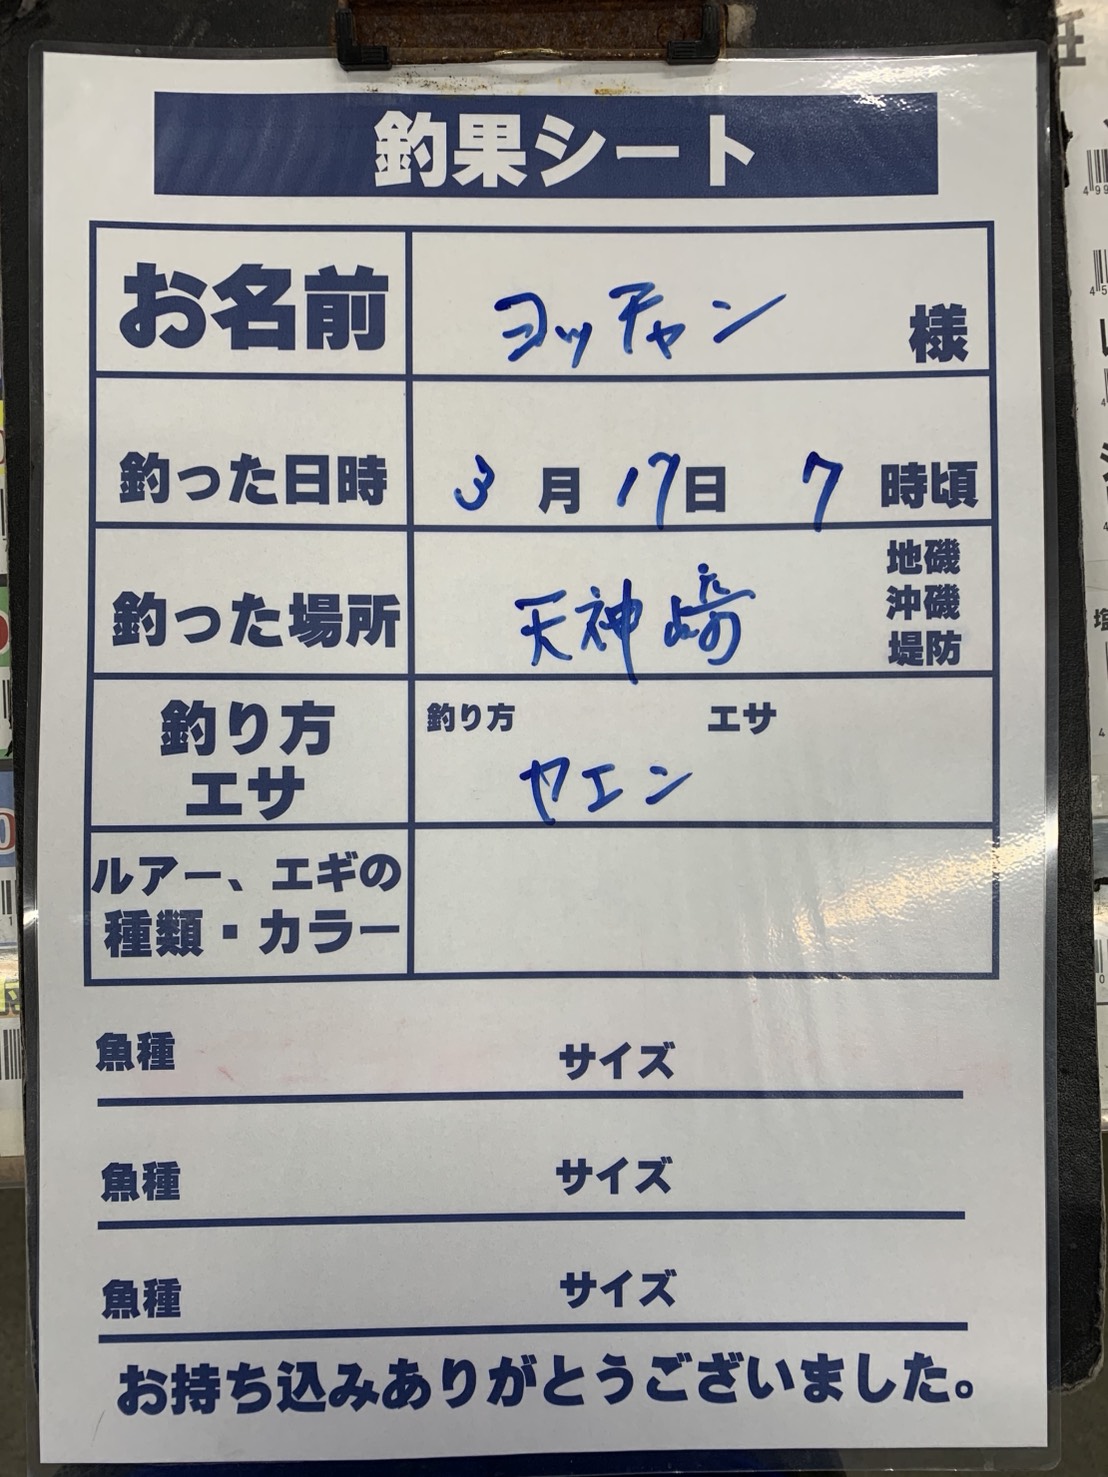 釣果シート
お名前 ヨッチャン 様
釣った日時 3月17日 7時頃
釣った場所 天神崎 地磯
沖磯
堤防
釣り方
エサ
釣り方 エサ
ヤエン
ルアー、エギの
種類・カラー
魚種 サイズ
魚種 サイズ
魚種 サイズ
お持ち込みありがとうございました。